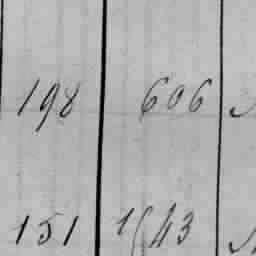 198 606
151 1643